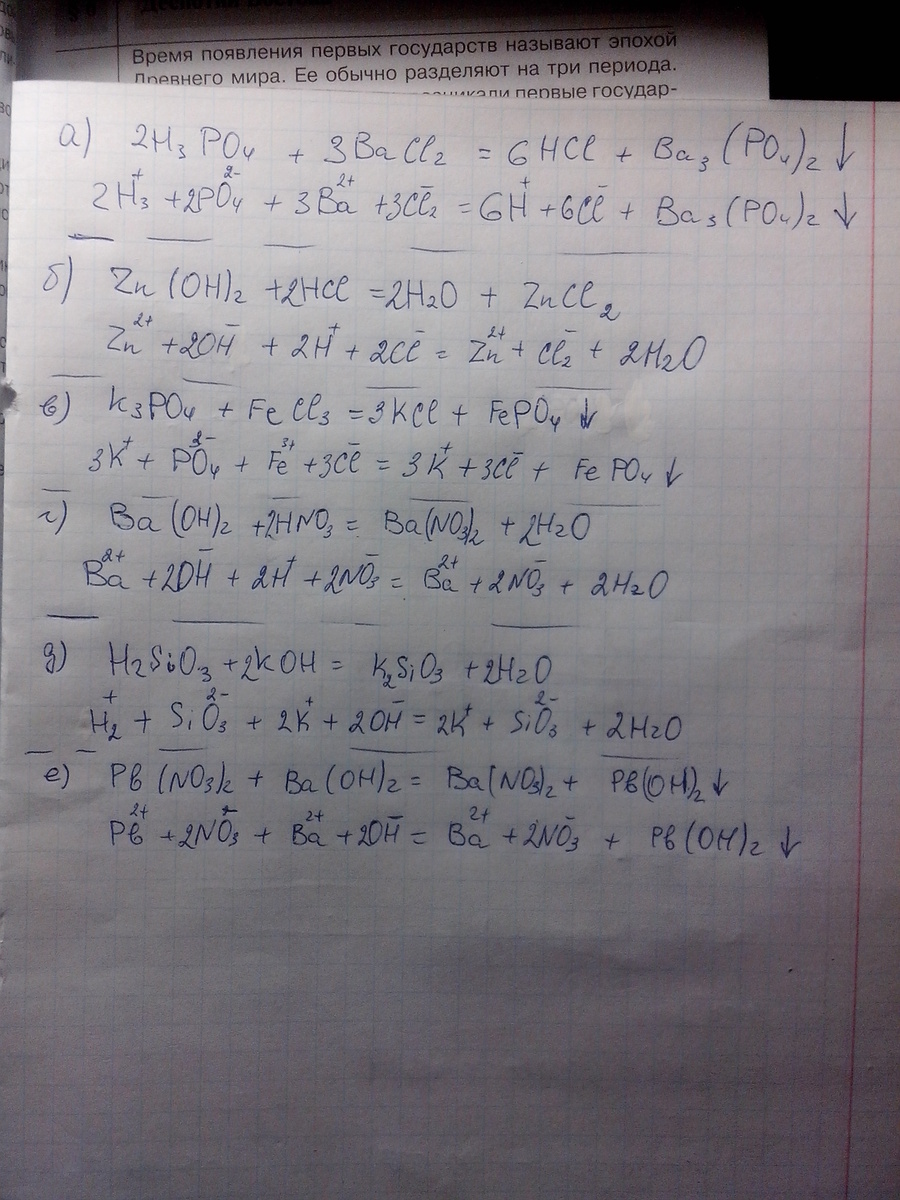 Время появления первых государств называют эпохой
Древнего мира. Ее обычно разделяют на три периода.
первые государ-
а) 2H₃PO₄ + 3BaCl₂ = 6HCl + Ba₃(PO₄)₂↓
2H₃⁺ + 2PO₄²⁻ + 3Ba²⁺ + 3Cl₂⁻ = 6H⁺ + 6Cl⁻ + Ba₃(PO₄)₂↓
б) Zn(OH)₂ + 2HCl = 2H₂O + ZnCl₂
Zn²⁺ + 2OH⁻ + 2H⁺ + 2Cl⁻ = Zn²⁺ + Cl₂⁻ + 2H₂O
в) K₃PO₄ + FeCl₃ = 3KCl + FePO₄↓
3K⁺ + PO₄³⁻ + Fe³⁺ + 3Cl⁻ = 3K⁺ + 3Cl⁻ + FePO₄↓
г) Ba(OH)₂ + 2HNO₃ = Ba(NO₃)₂ + 2H₂O
Ba²⁺ + 2OH⁻ + 2H⁺ + 2NO₃⁻ = Ba²⁺ + 2NO₃⁻ + 2H₂O
д) H₂SiO₃ + 2KOH = K₂SiO₃ + 2H₂O
H₂⁺ + SiO₃²⁻ + 2K⁺ + 2OH⁻ = 2K⁺ + SiO₃²⁻ + 2H₂O
е) Pb(NO₃)₂ + Ba(OH)₂ = Ba(NO₃)₂ + Pb(OH)₂↓
Pb²⁺ + 2NO₃⁻ + Ba²⁺ + 2OH⁻ = Ba²⁺ + 2NO₃⁻ + Pb(OH)₂↓